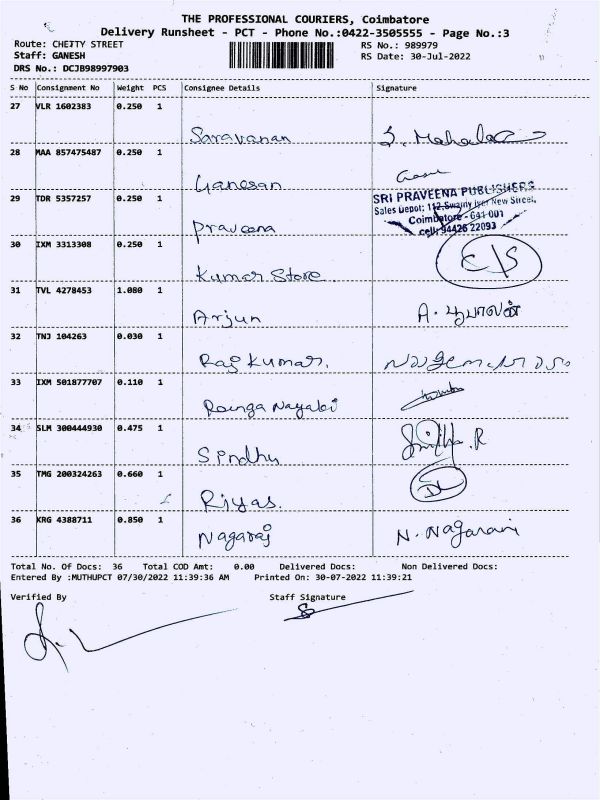 THE PROFESSIONAL COURIERS, Coimbatore
Delivery Runsheet - PCT - Phone No.:0422-3505555 - Page No.:3
Route: CHETTY STREET RS No.: 989979
Staff: GANESH RS Date: 30-Jul-2022
DRS No.: DCJB98997903
S No Consignment No Weight PCS Consignee Details Signature
27 VLR 1602383 0.250 1
Saravanan S. Mahalac
28 MAA 857475487 0.250 1
Ganesan
29 TDR 5357257 0.250 1 SRI PRAVEENA PUBLISHERS
Sales Depot: 112, Swamy Iyer New Street,
Coimbatore - 641 001
Praveena cell: 94426 22093
30 IXM 3313308 0.250 1
Kumar Store C/S
31 TVL 4278453 1.080 1
Arjun A. பூபாலன்
32 TNJ 104263 0.030 1
Raj Kumar.
33 IXM 501877707 0.110 1
Ranga Nayaki
34 SLM 300444930 0.475 1
Sindhu R
35 TMG 200324263 0.660 1
Riyas.
36 KRG 4388711 0.850 1
Nagaraj N. Nagarani
Total No. Of Docs: 36 Total COD Amt: 0.00 Delivered Docs: Non Delivered Docs:
Entered By :MUTHUPCT 07/30/2022 11:39:36 AM Printed On: 30-07-2022 11:39:21
Verified By Staff Signature